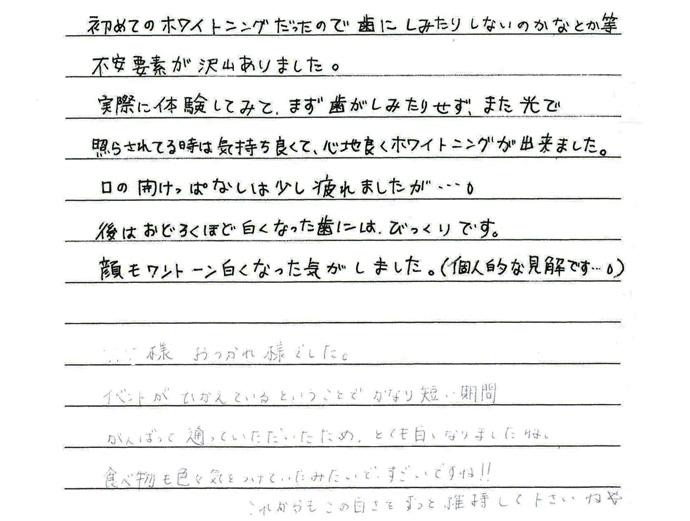 初めてのホワイトニングだったので歯にしみたりしないのかなとか等
不安要素が沢山ありました。
実際に体験してみて、まず歯がしみたりせず、また光で
照らされてる時は気持ち良くて、心地良くホワイトニングが出来ました。
口の開けっぱなしは少し疲れましたが…。
後はおどろくほど白くなった歯には、びっくりです。
顔もワントーン白くなった気がしました。(個人的な見解です…。)
様 おつかれ様でした。
イベントがひかえているということでかなり短い期間
がんばって通っていただいたため、とても白くなりましたね。
食べ物も色々気をつけていたみたいで、すごいですね!!
これからもこの白さをずっと維持して下さいね☆